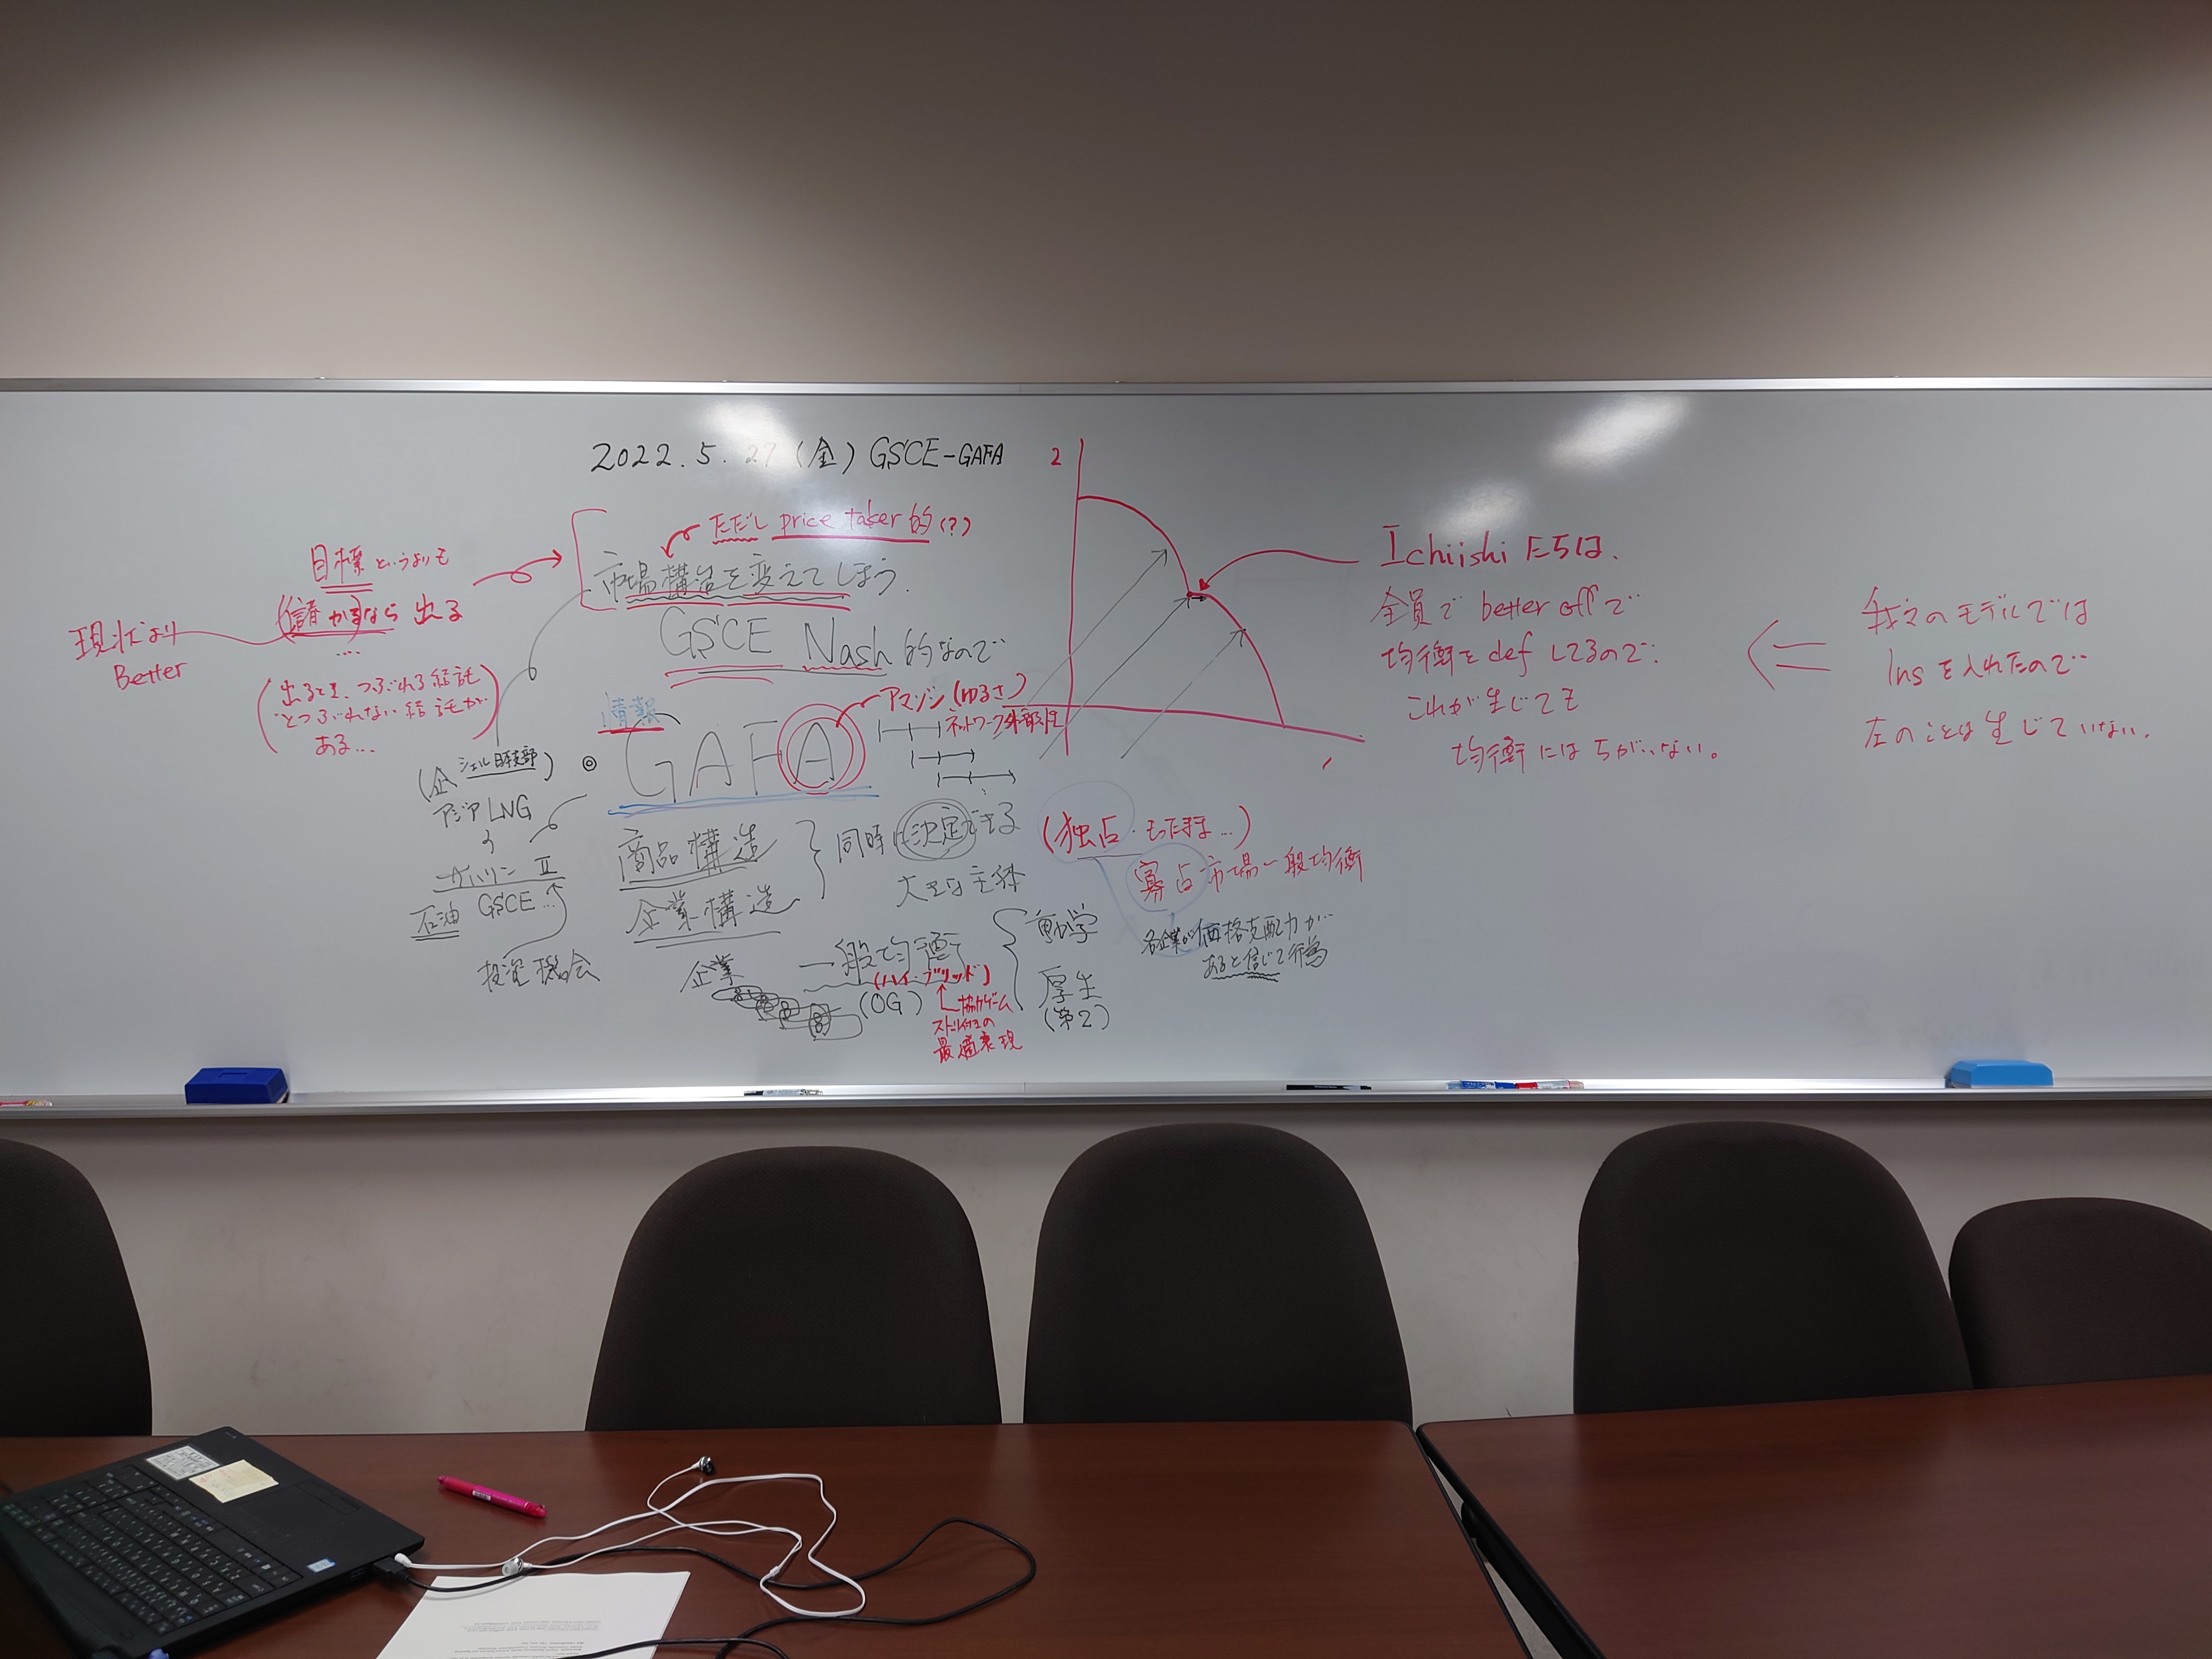 2022.5.27(金) GSCE-GAFA
ただし price taker的(?)
市場構造を変えてしまう.
GSCE Nash的なので
目標というよりも
儲かるなら出る
....
現状より
Better
(出るとき、つぶれる結託
とつぶれない結託が
ある...)
情報
アマゾン(ゆるさ)
ネットワーク外部性
◎ GAFA
(企 シェル日本支部)
アジアLNG
サハリンⅡ
石油 GSCE...
投資機会
商品構造
企業構造
同時に決定できる
大きな主体
企業
一般均衡
(ハイブリッド)
(OG)
協力ゲーム
最適表現
動学
厚生
(第2)
2
Ichiishiたちは、
全員で better off で
均衡を def してるので、
これが生じても
均衡にはちがいない。
我々のモデルでは
Insを入れたので
左のことは生じていない.
(独占・もったまま...)
寡占市場一般均衡
各企業が価格支配力が
あると信じて行為